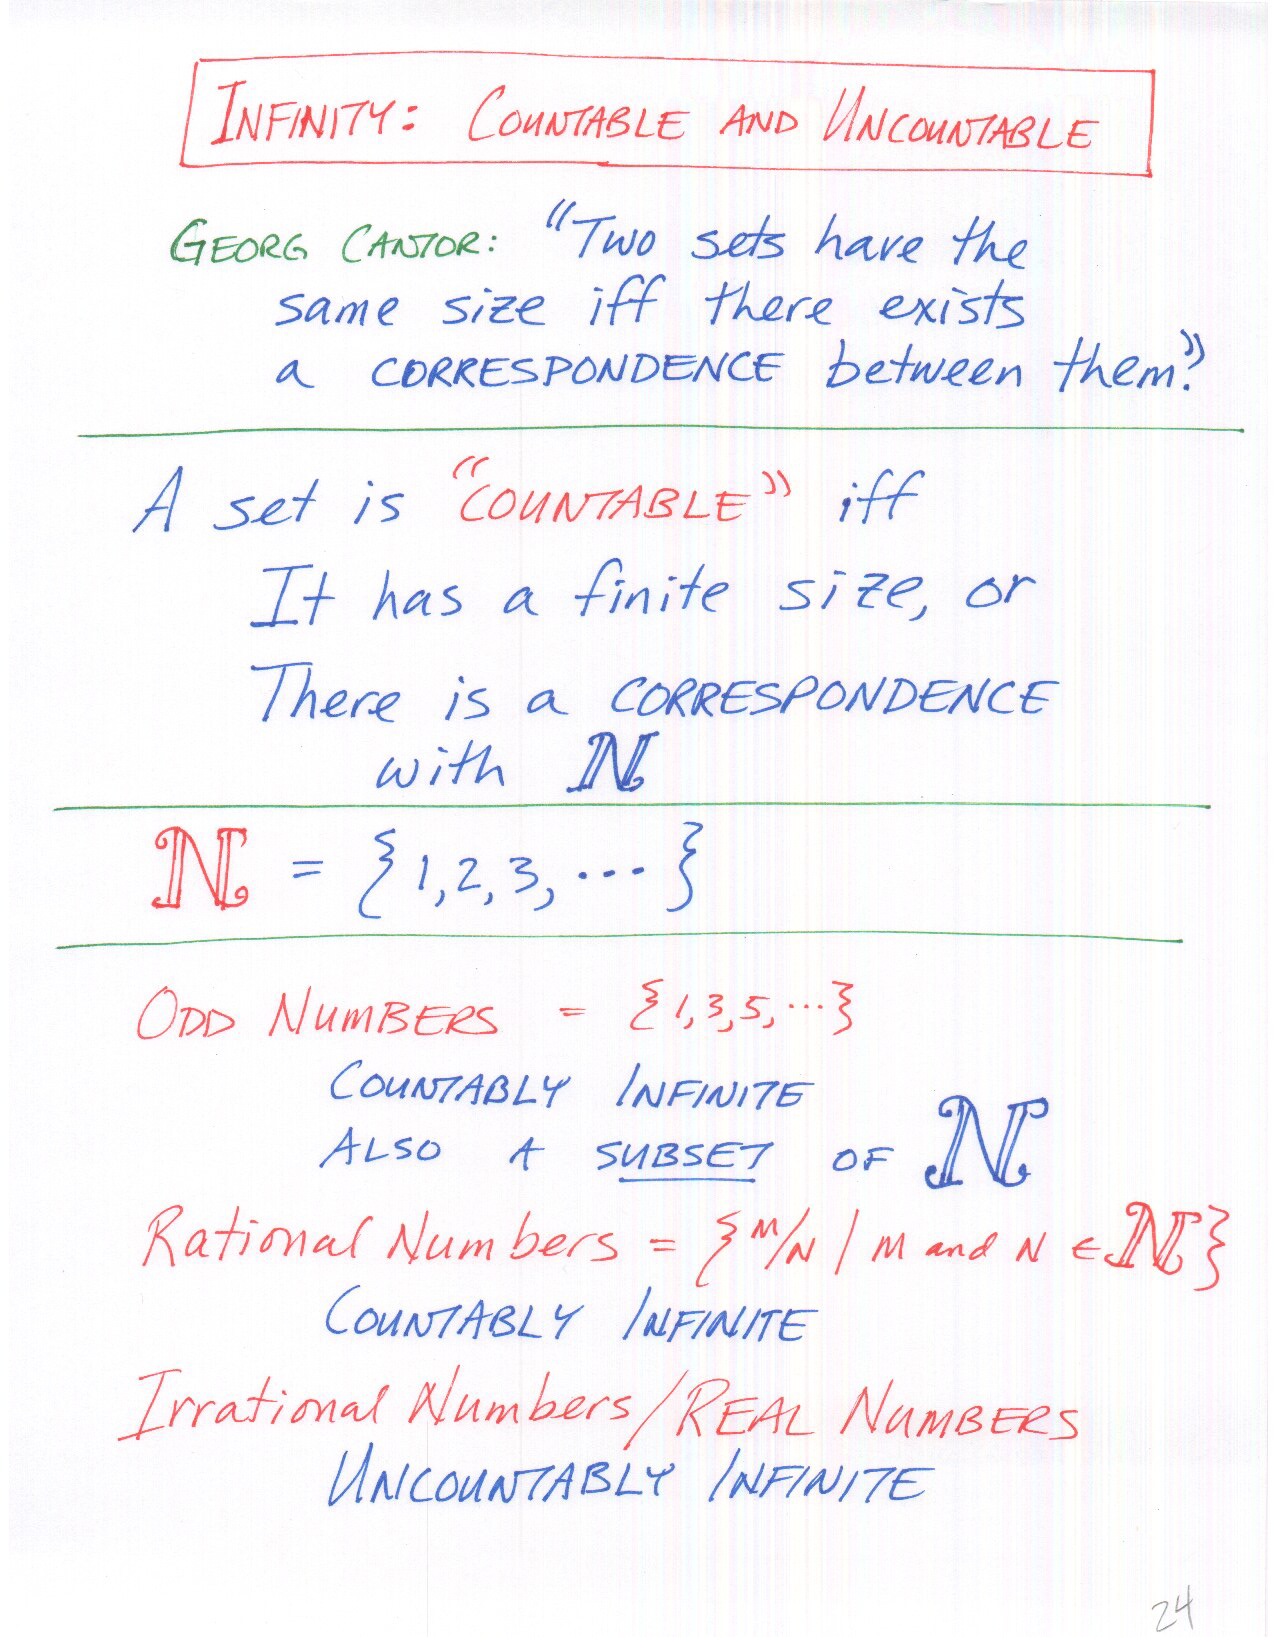 INFINITY: COUNTABLE AND UNCOUNTABLE
GEORG CANTOR: "Two sets have the
same size iff there exists
a CORRESPONDENCE between them."
A set is "COUNTABLE" iff
It has a finite size, or
There is a CORRESPONDENCE
with ℕ
ℕ = {1,2,3,...}
ODD NUMBERS = {1,3,5,...}
COUNTABLY INFINITE
ALSO A SUBSET OF ℕ
Rational Numbers = {M/N | M and N ∈ ℕ}
COUNTABLY INFINITE
Irrational Numbers/REAL NUMBERS
UNCOUNTABLY INFINITE
24